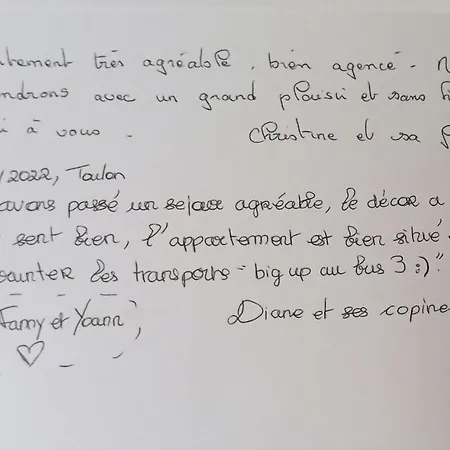 tement très agréable, bien agencé - N
ndrons avec un grand plaisir et sans h
i à vous - Christine et sa f
/2022, Toulon
avons passé un sejour agréable, le décor a
sent bien, l'appartement est bien situé
les transports - big up au bus 3 :)"
Fanny et Yoann, Diane et ses copine